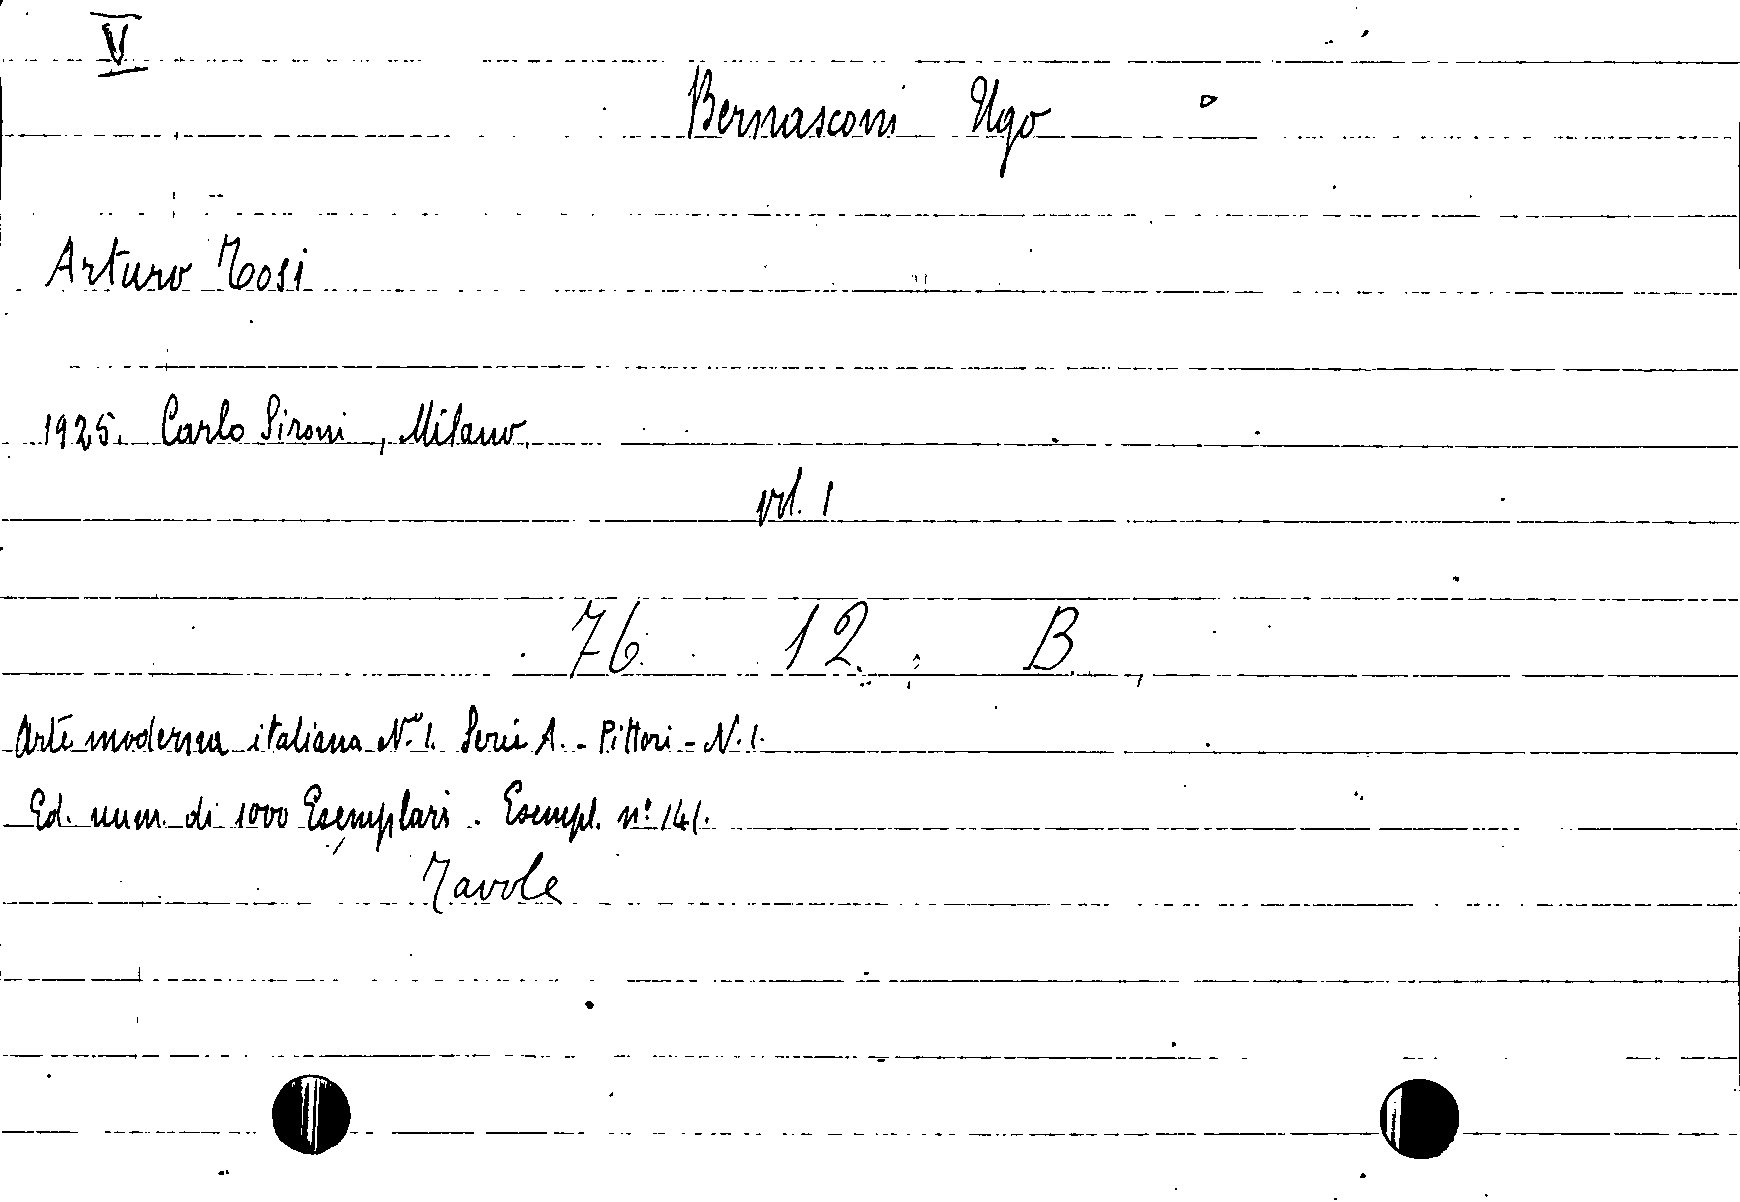 V
Bernasconi Ugo
Arturo Tosi
1925. Carlo Sironi, Milano.
vol. 1
76 12 B
Arte moderna italiana N.º 1. Serie A. - Pittori - N. 1.
Ed. num. di 1000 Esemplari. Esempl. nº 141.
Tavole